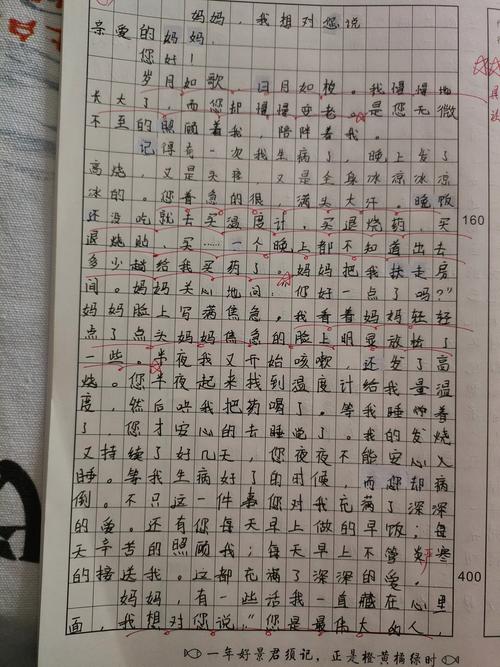 妈妈，我想对您说
亲爱的妈妈：
您好！
岁月如歌，日月如梭。我慢慢地
长大了，而您却慢慢变老。是您无微
不至的照顾着我，陪伴着我。
记得有一次我生病了，晚上发了
高烧，又是头疼，又是全身冰凉冰凉
冰的。您着急的很，满头大汗。晚饭
还没吃就去买温度计，买退烧药，买
160
退烧贴，买……一个晚上都不知道出去
多少趟给我买药了。妈妈把我扶走房
间。妈妈关心地问：“你好一点了吗？”
妈妈脸上写满焦急，我看着妈妈轻轻
点了点头妈妈焦急的脸上明显放松了
一些。半夜我又开始咳嗽，还发了高
烧。您半夜起来找到温度计给我量温
度，然后哄我把药喝了。等我睡着
了，您才安心的去睡觉了。我的发烧
又持续了好几天，您夜夜不能安心入
睡。等我生病好了的时候，而您却病
倒。不只这一件事您对我充满了深深
的爱。还有您每天早上做的早饭；每
天辛苦的照顾我；每天早上不管炎寒
的接送我。这都充满了深深的爱。
400
妈妈，有一些话我一直藏在心里
面，我想对您说：“您是最伟大的人，
一年好景君须记，正是橙黄橘绿时